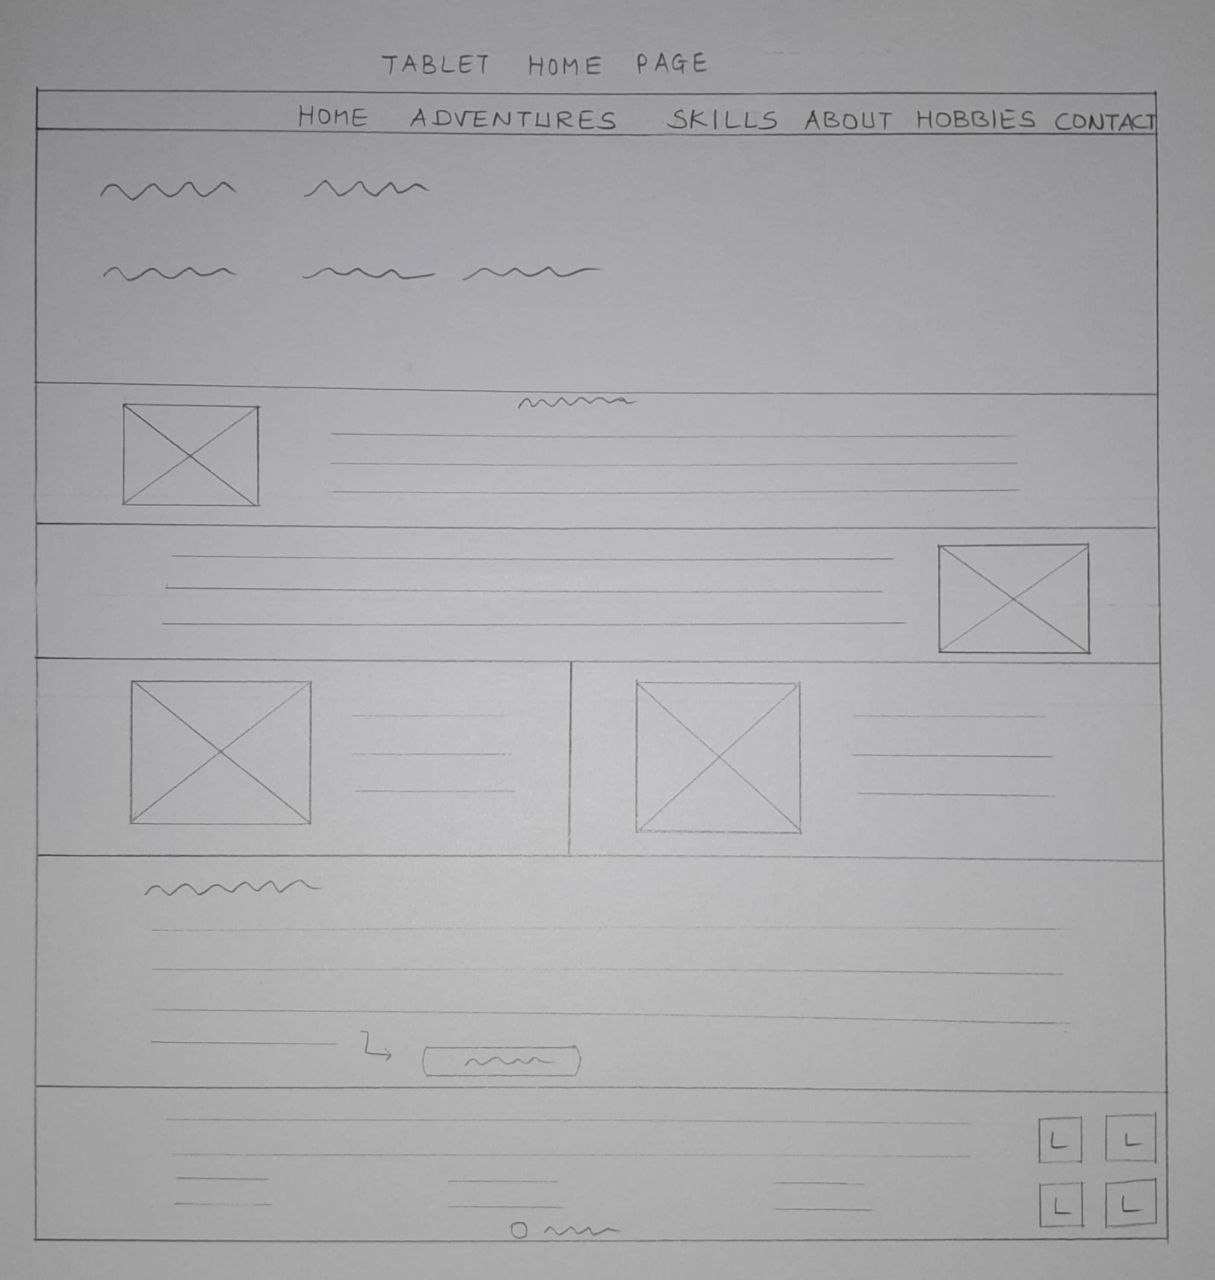 TABLET HOME PAGE
HOME ADVENTURES SKILLS ABOUT HOBBIES CONTACT
L L
L L